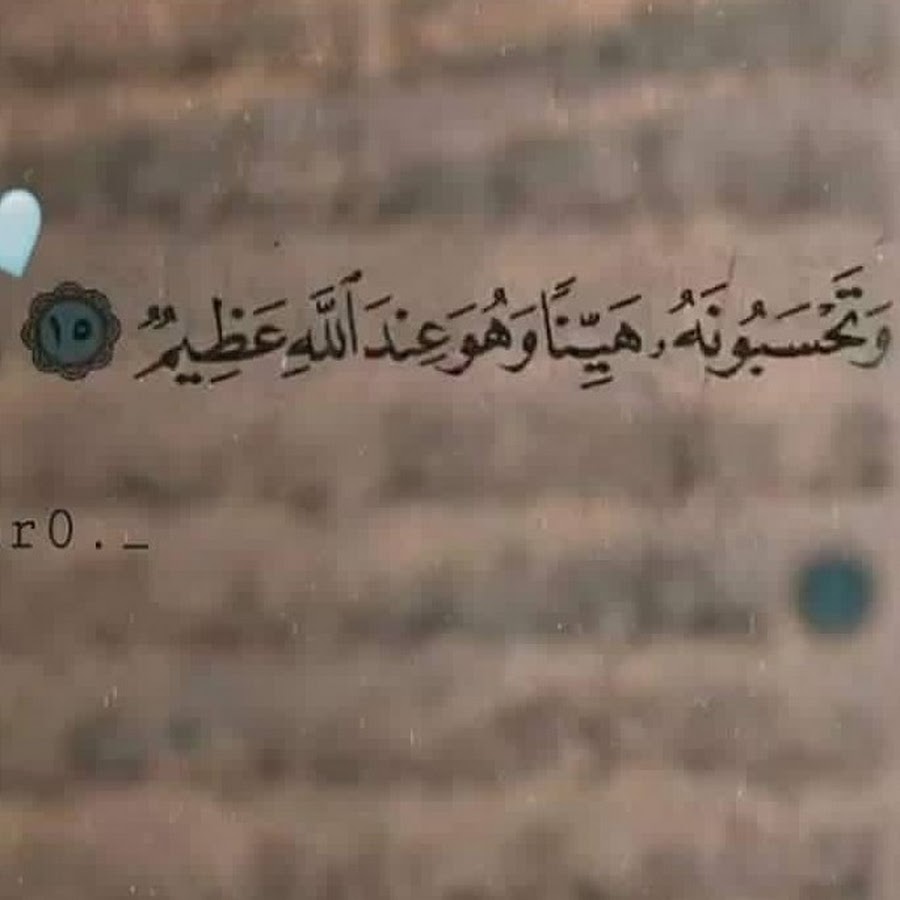 وَتَحْسَبُونَهُۥ هَيِّنًا وَهُوَ عِندَ ٱللَّهِ عَظِيمٌ ١٥
r0._